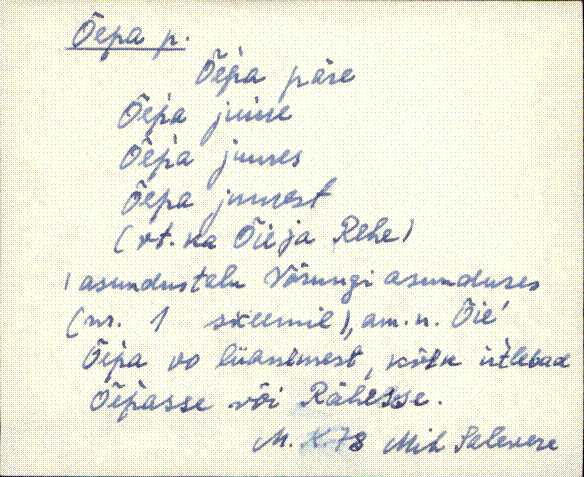 Õepa p.
Õèpa päre
Õèpa juure
Õèpa juures
Õepa juurest
(vt. ka Õie ja Rehe)
asundustalu Võrungi asunduses
(nr. 1 skeemil), am. n. Õie'
Õèpa vo lüanimest, kõik ütlebad
Õèpasse või Rähesse.
M. K. 78 Mih Salevere